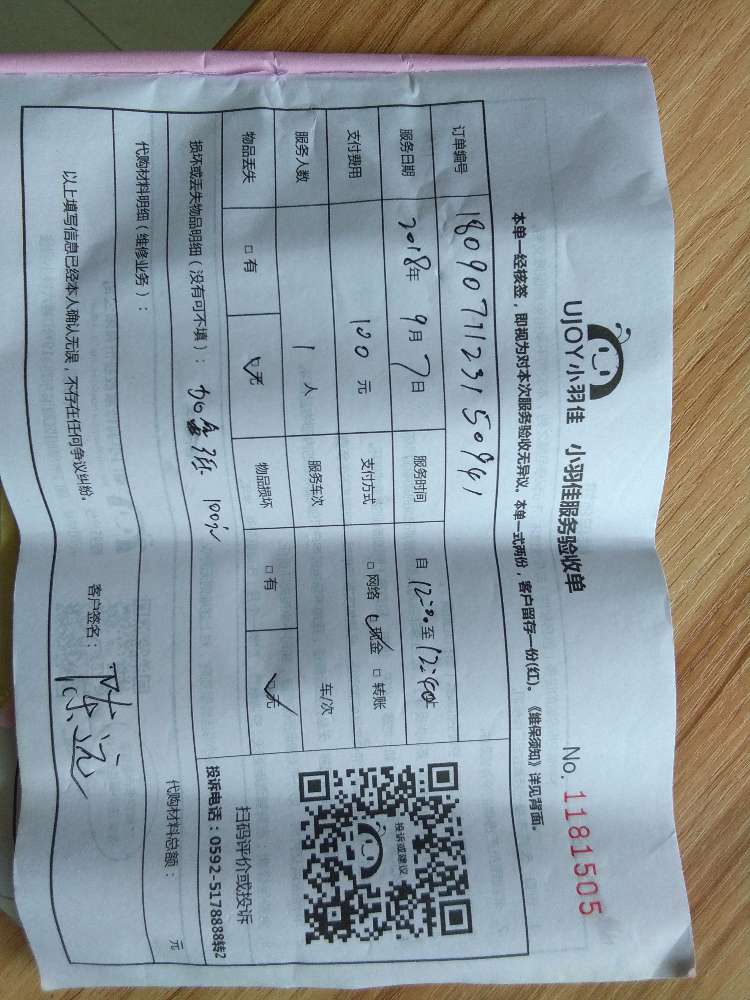 UJOY小羽佳 小羽佳服务验收单 No. 1181505
本单一经核签，即视为对本次服务验收无异议。本单一式两份，客户留存一份(红)。《维保须知》详见背面。
订单编号
服务日期 2018年 9月 7日 服务时间 自 12:00 至 12:40
支付费用 100 元 支付方式 □ 网络 ☑ 现金 □ 转账
服务人数 1 人 服务车次 车/次
物品丢失 □ 有 ☑ 无 物品损坏 □ 有 ☑ 无
投诉或建议
扫码评价或投诉
投诉电话：0592-5178888转2
损坏或丢失物品明细（没有可不填）： 100%
代购材料明细（维修业务）： 代购材料总额： 元
以上填写信息已经本人确认无误，不存在任何争议纠纷。 客户签名： 陈远